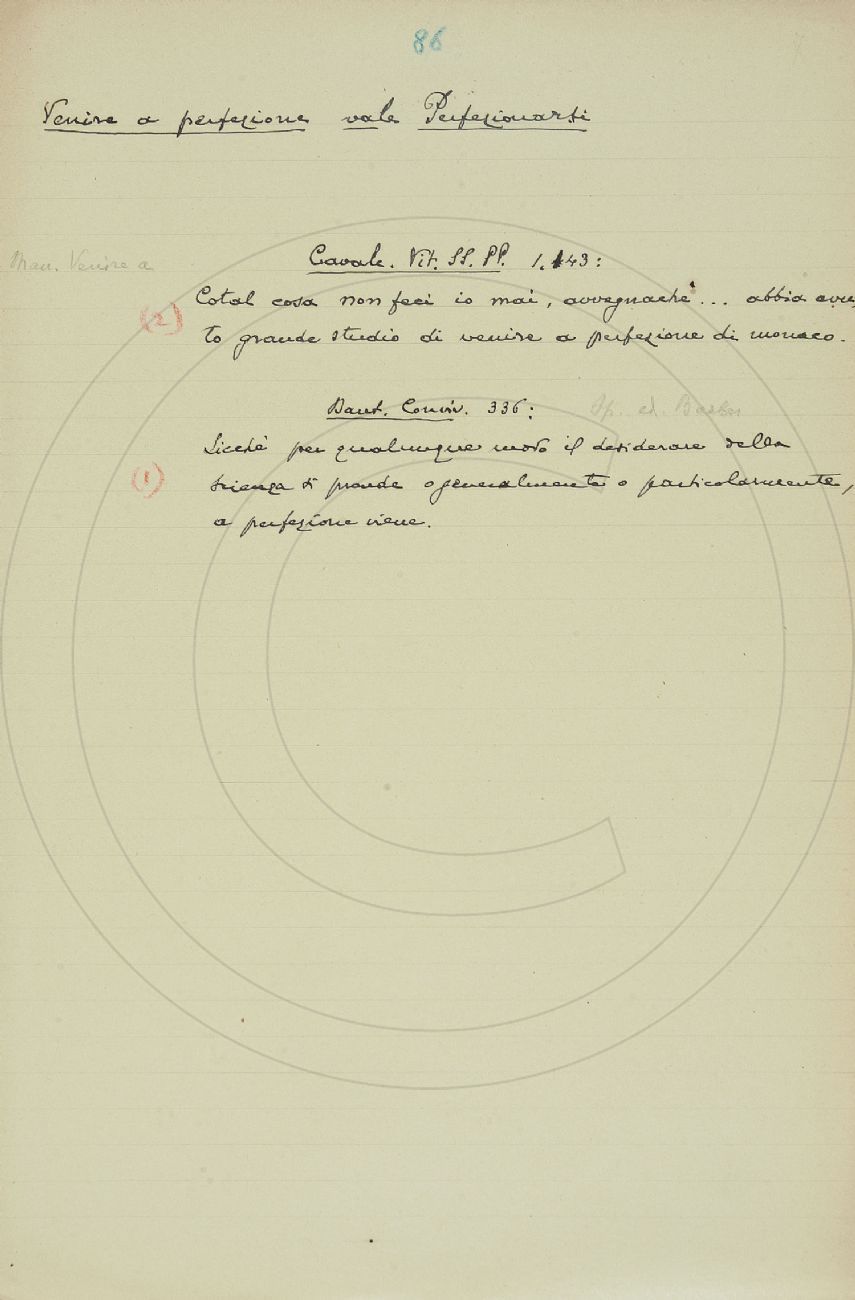 86
Venire a perfezione vale Perfezionarsi
Man. Venire a
Cavalc. Vit. SS. PP. 1. 143:
(2) Cotal cosa non feci io mai, avvegnachè ... abbia avu
to grande studio di venire a perfezione di monaco.
Dant. Conviv. 336:
Sicchè per qualunque modo il desiderare della
(1) scienza si prende o generalmente o particolarmente,
a perfezione viene.